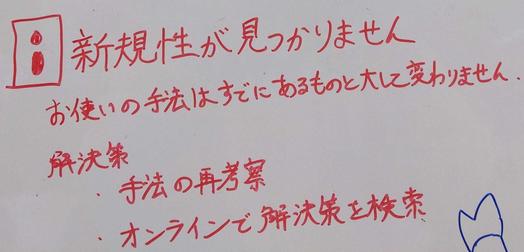 新規性が見つかりません
お使いの手法はすでにあるものと大して変わりません.
解決策
・手法の再考察
・オンラインで解決策を検索